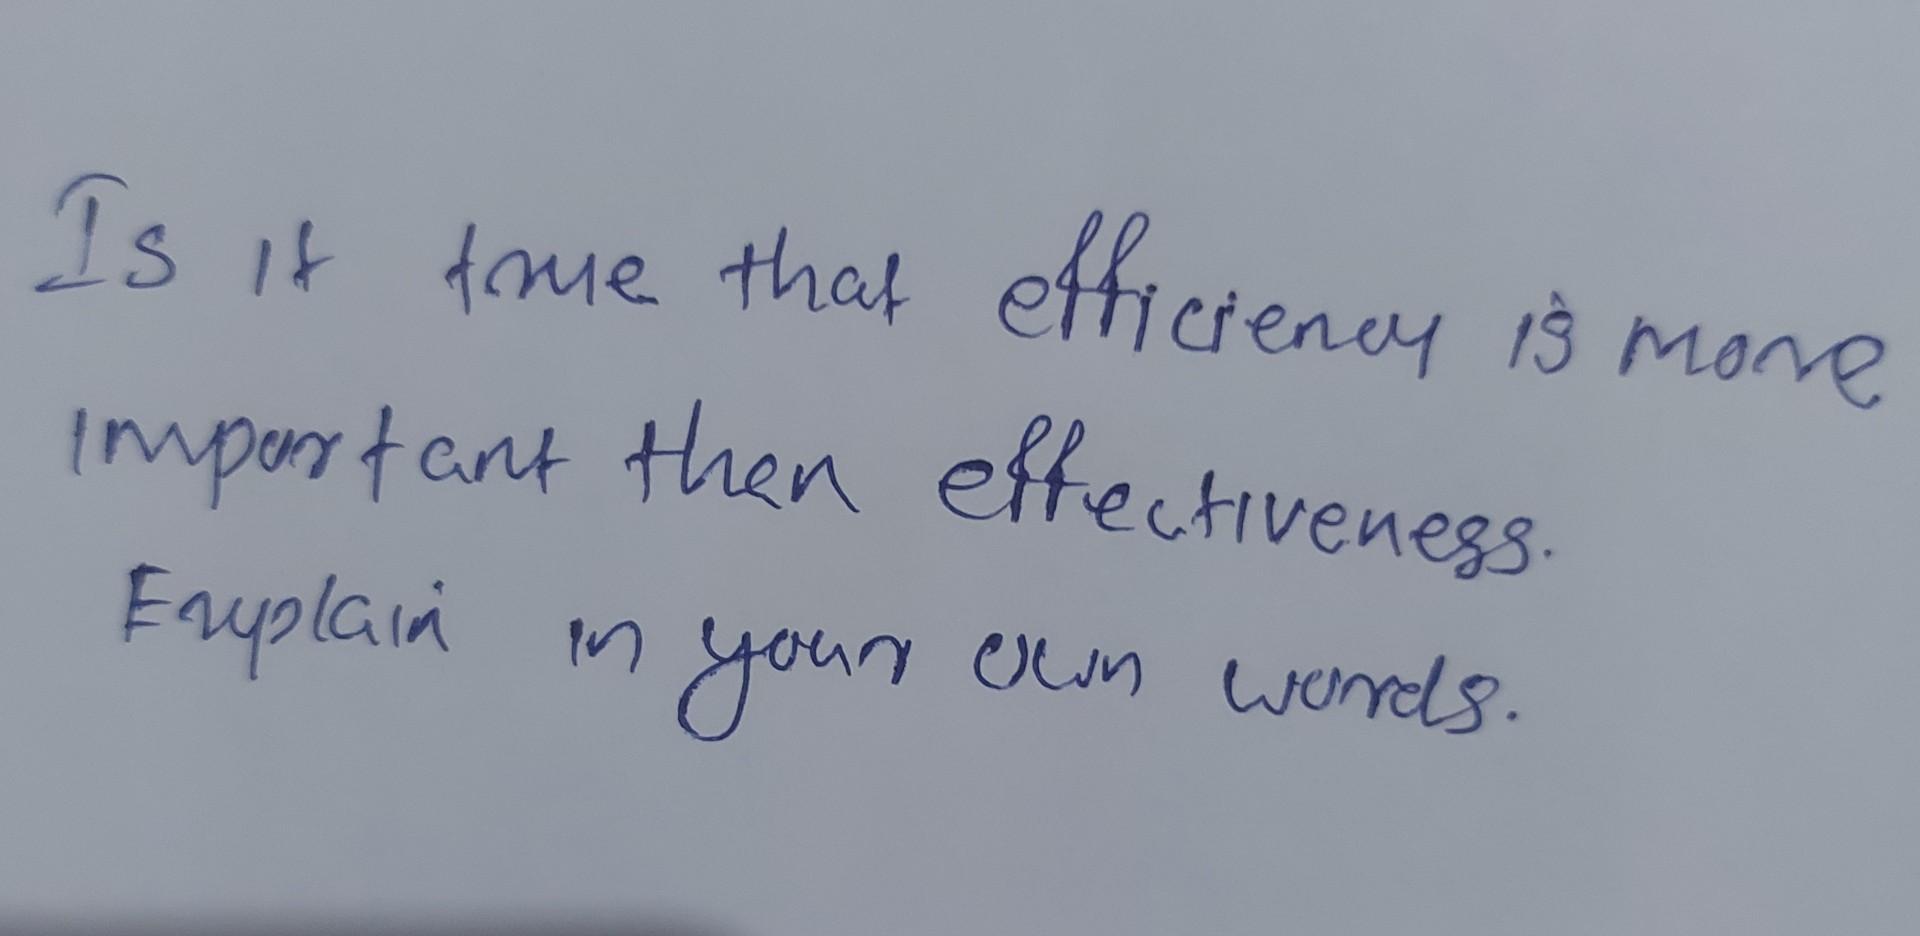 Is it true that efficiency is more
important then effectiveness.
Explain in your own words.